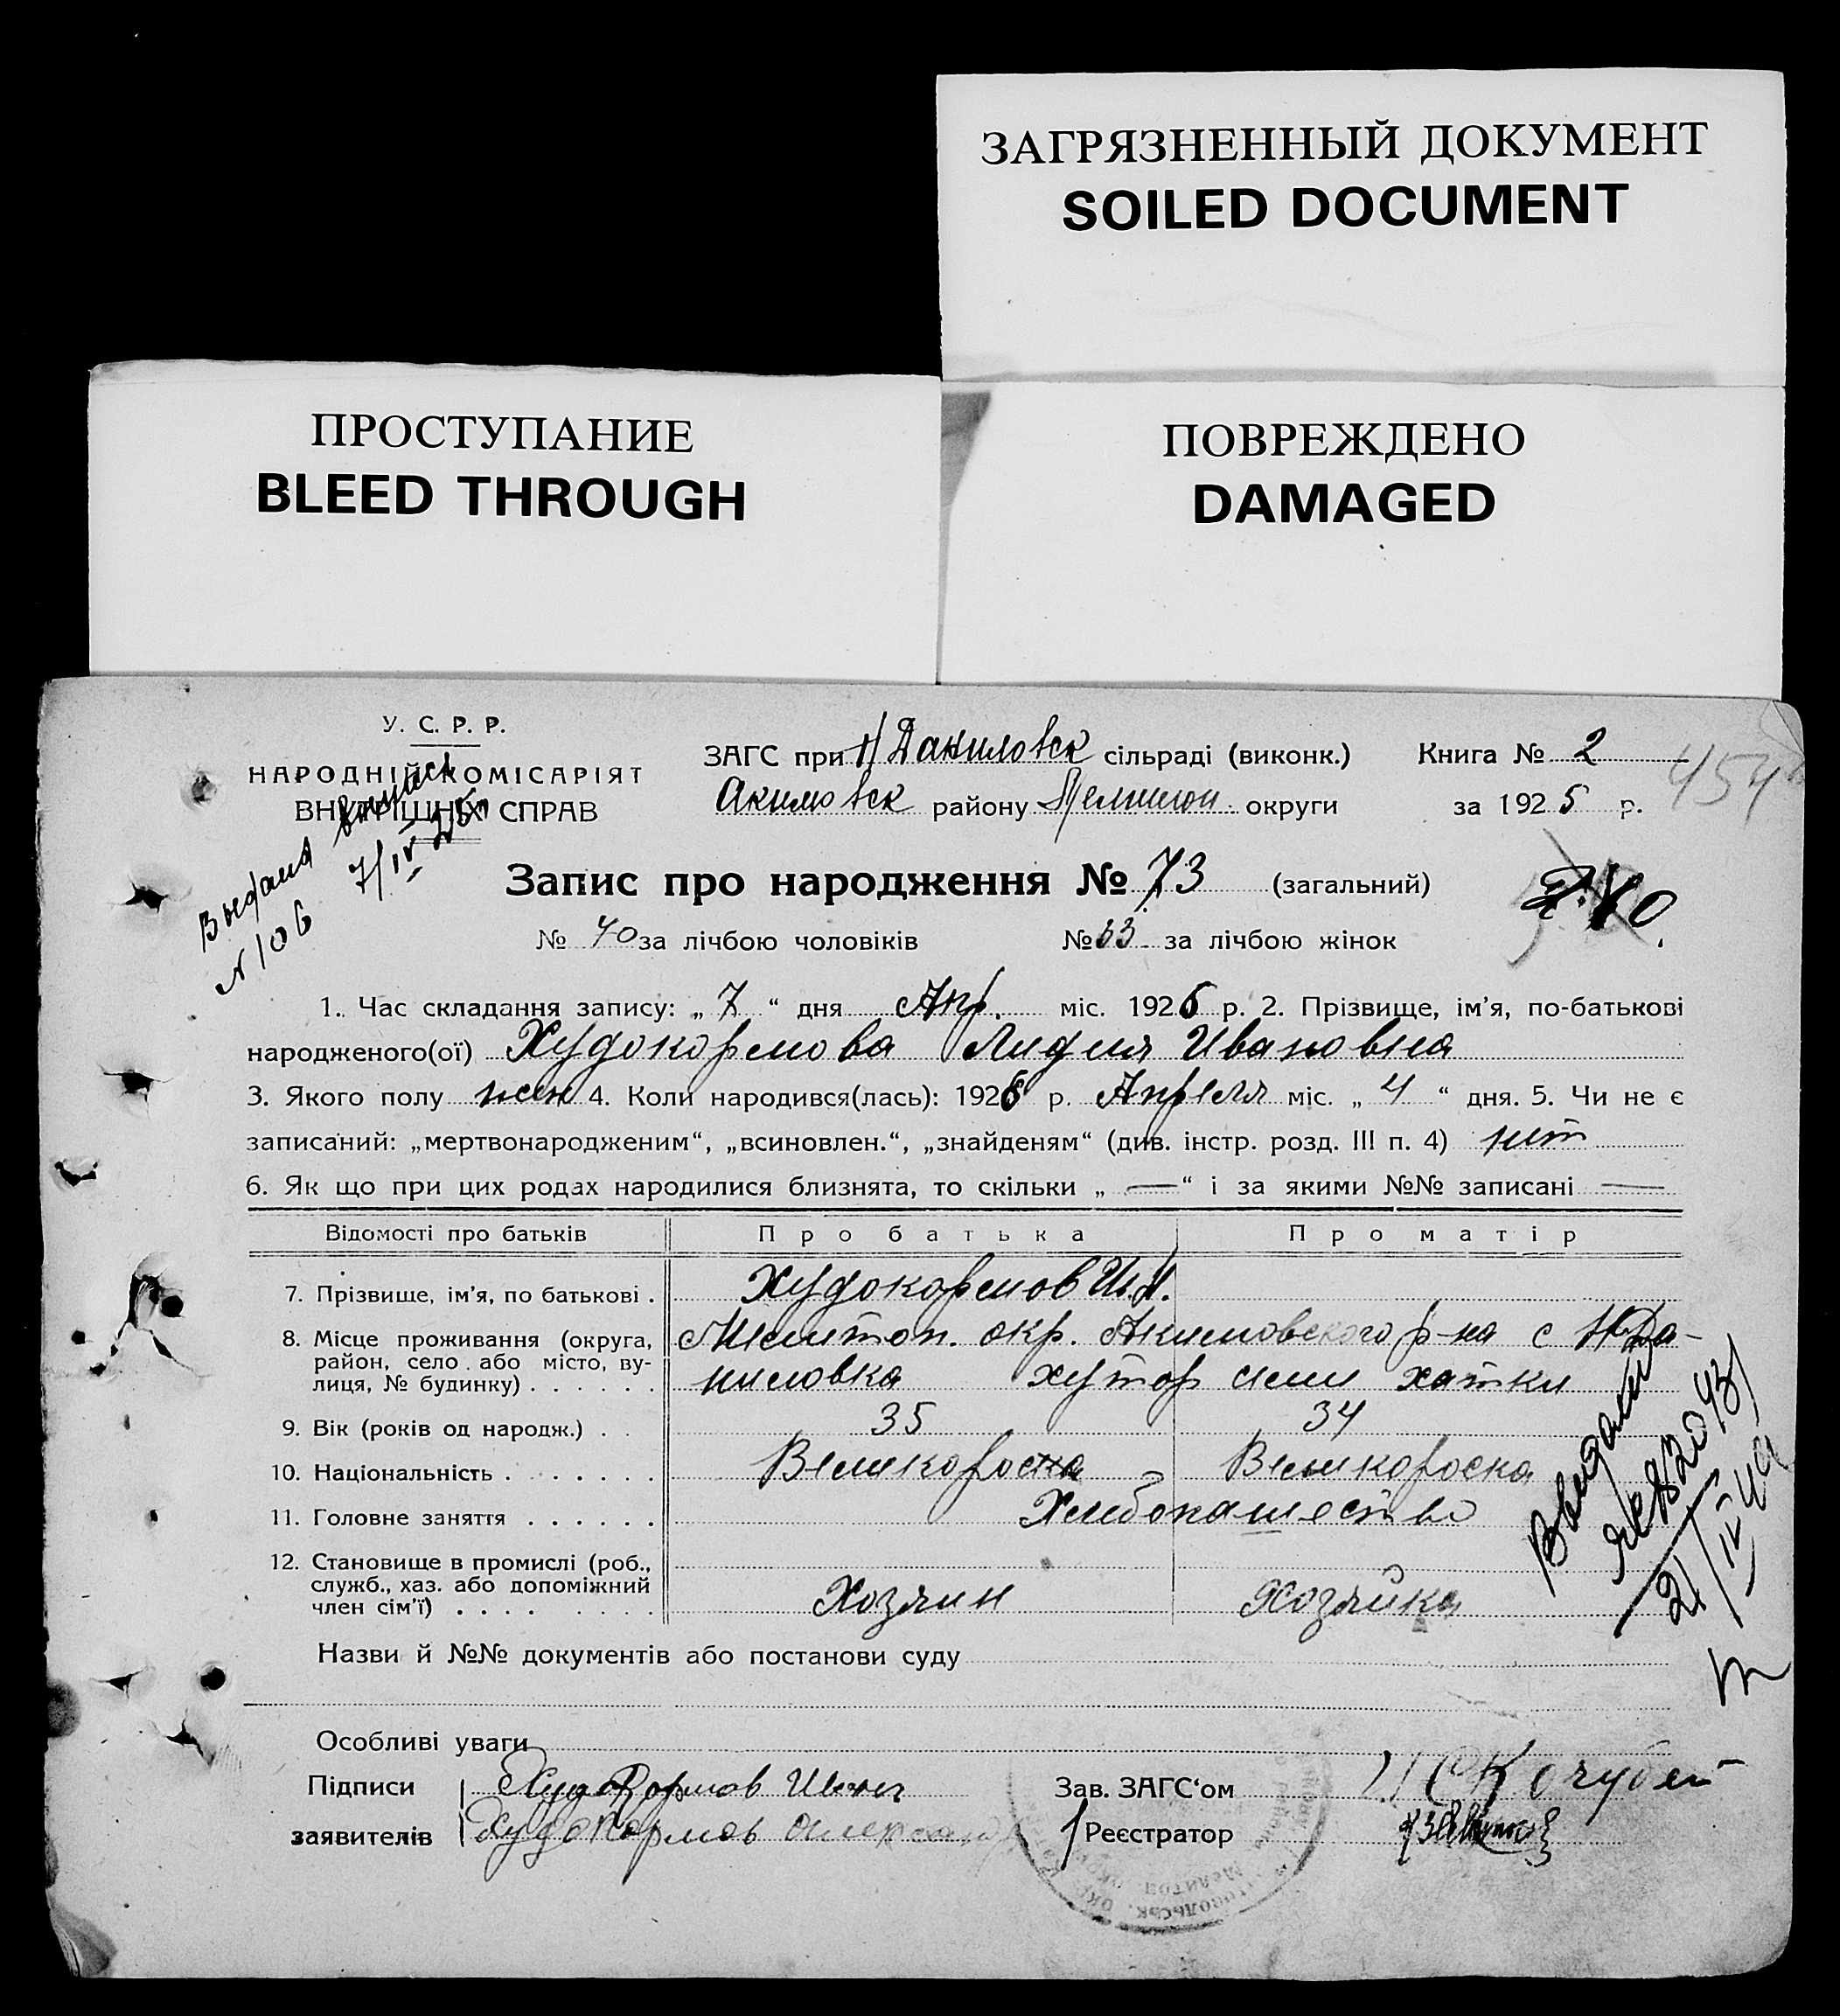 ЗАГРЯЗНЕННЫЙ ДОКУМЕНТ
SOILED DOCUMENT
ПРОСТУПАНИЕ
BLEED THROUGH
ПОВРЕЖДЕНО
DAMAGED
У. С. Р. Р.
НАРОДНІЙ КОМІСАРІЯТ
ВНУТРІШНІХ СПРАВ
ЗАГС при Н/Даниловск сільраді (виконк.)
Акимовск району Мелитоп. округи
Книга № 2
за 1925 р.
454
Выдана выпись
№ 106 7/IV 25
Запис про народження № 73 (загальний)
№ 40 за лічбою чоловіків № 33 за лічбою жінок
1. Час складання запису: „ 7 “ дня Апр. міс. 1925 р. 2. Прізвище, ім’я, по-батькові
народженого(ої) Худокормова Лидия Ивановна
3. Якого полу жен 4. Коли народився(лась): 1925 р. Апреля міс. „ 4 “ дня. 5. Чи не є
записаний: „мертвонародженим“, „всиновлен.“, „знайденям“ (див. інстр. розд. III п. 4) нет
6. Як що при цих родах народилися близнята, то скільки „ — “ і за якими №№ записані —
Відомості про батьків Про батька Про матір
7. Прізвище, ім’я, по батькові . Худокормов И. И.
8. Місце проживання (округа, Мелитоп. окр. Акимовского р-на с Н-Да-
район, село або місто, ву-
лиця, № будинку) . . . . . . ниловка хутор семи хатки
9. Вік (років од народж.) . . 35 34
10. Національність . . . . . . . Великороска Великороска
11. Головне заняття . . . . . . Хлебопашество
12. Становище в промислі (роб.,
служб., хаз. або допоміжний
член сім’ї) . . . . . . . . Хозяин Хозяйка
Назви й №№ документів або постанови суду
Особливі уваги
Підписи Худокормов Иван Зав. ЗАГС‘ом Кочубей
заявителів Худокормов Реєстратор
21/IV